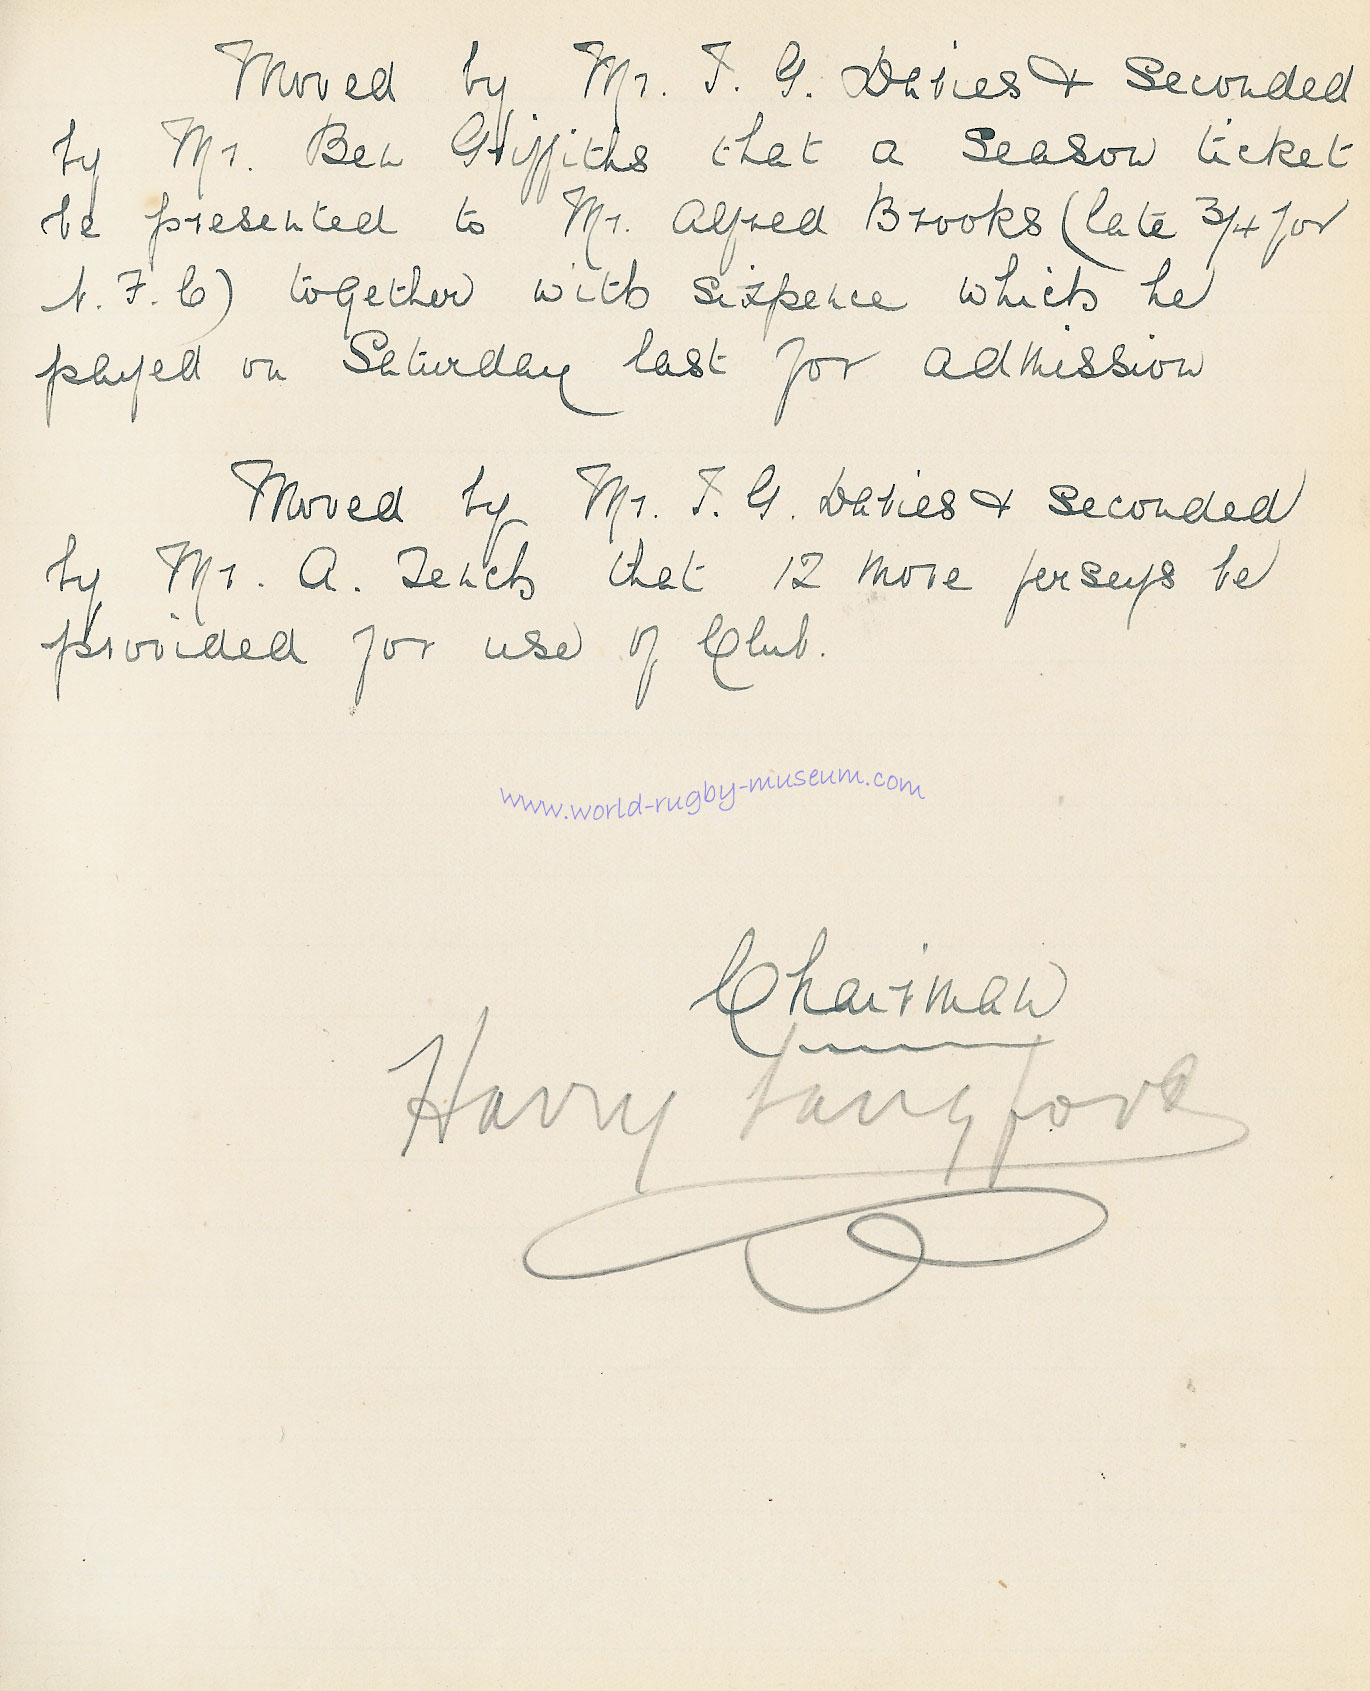 Moved by Mr. T. G. Davies & Seconded
by Mr. Ben Griffiths that a Season ticket
be presented to Mr. Alfred Brooks (late 3/4 for
N. F. C) together with sixpence which he
payed on Saturday last for admission
Moved by Mr. T. G. Davies & seconded
by Mr. A. Tench that 12 more jerseys be
provided for use of Club.
www.world-rugby-museum.com
Chairman
Harry Langford